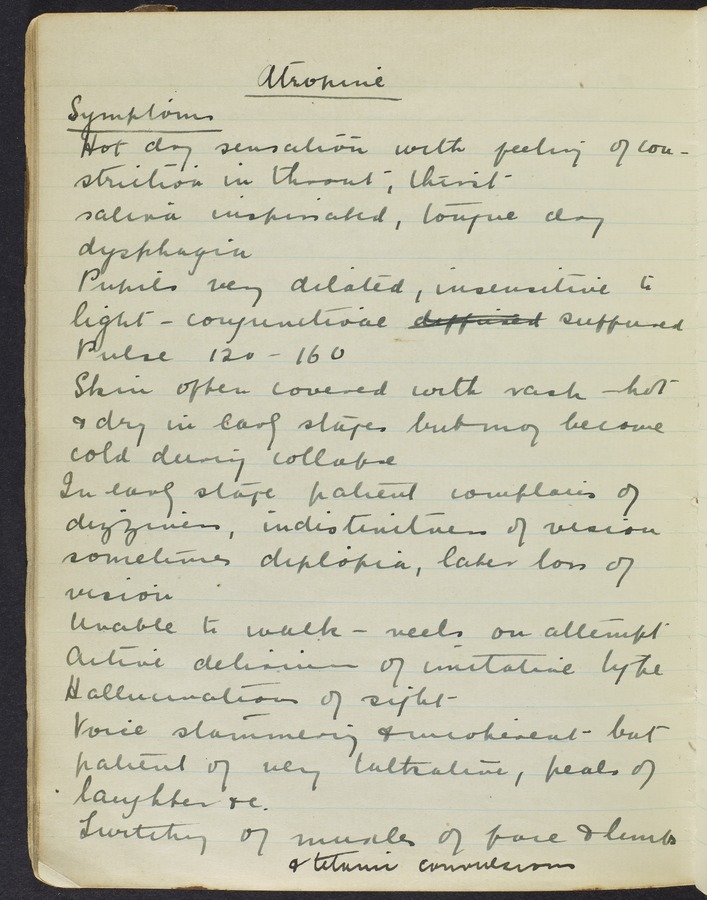 Atropine
Symptoms
Hot dry sensation with feeling of con-
striction in throat, thirst
saliva inspissated, tongue dry
dysphagia
Pupils very dilated, insensitive to
light - conjunctivae diffused suffused
Pulse 120 - 160
Skin often covered with rash - hot
& dry in early stages but may become
cold during collapse
In early stage patient complains of
dizziness, indistinctness of vision
sometimes diplopia, later loss of
vision
Unable to walk - reels on attempt
Active delirium of imitative type
Hallucinations of sight
Voice stammering & incoherent - but
patient of very talkative, peals of
laughter &c.
Twitching of muscles of face & limbs
& tetanic convulsions